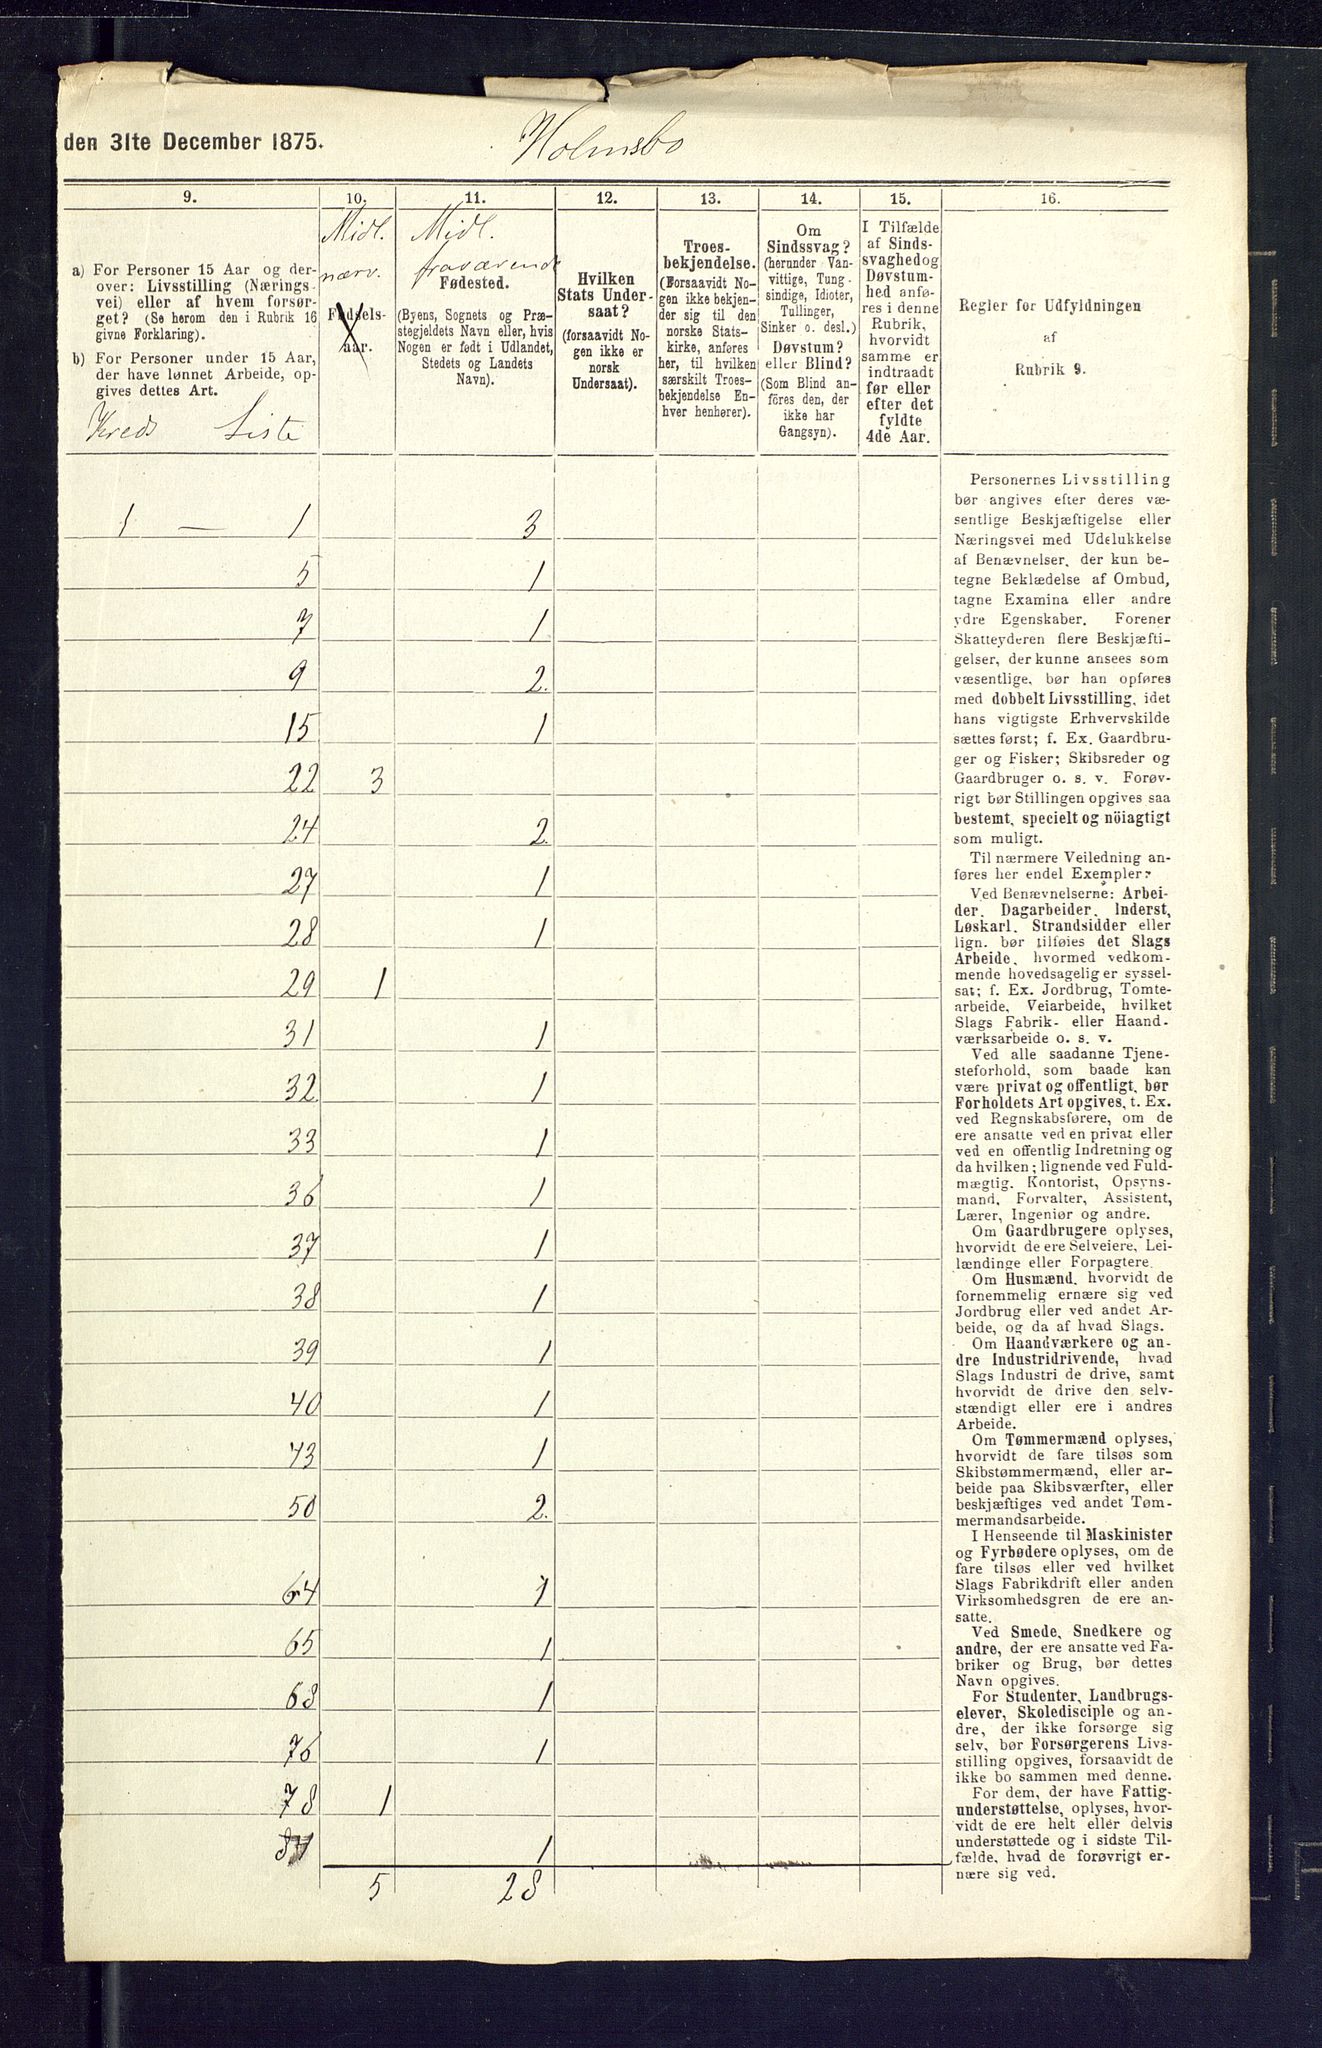 den 31te December 1875.
Holmsbo
9.
a) For Personer 15 Aar og der-
over: Livsstilling (Nærings-
vei) eller af hvem forsør-
get? (Se herom den i Rubrik 16
givne Forklaring).
b) For Personer under 15 Aar,
der have lønnet Arbeide, op-
gives dettes Art.
Kreds Liste
10.
Midl.
nærv.
Fødsels-
aar.
11.
Midl.
fraværende
Fødested.
(Byens, Sognets og Præ-
stegjeldets Navn eller, hvis
Nogen er født i Udlandet,
Stedets og Landets
Navn).
12.
Hvilken
Stats Under-
saat?
(forsaavidt No-
gen ikke er
norsk
Undersaat).
13.
Troes-
bekjendelse.
(Forsaavidt No-
gen ikke bekjen-
der sig til den
norske Stats-
kirke, anføres
her, til hvilken
særskilt Troes-
bekjendelse En-
hver henhører).
14.
Om
Sindssvag?
(herunder Van-
vittige, Tung-
sindige, Idioter,
Tullinger,
Sinker o. desl.)
Døvstum?
eller Blind?
(Som Blind an-
føres den, der
ikke har
Gangsyn).
15.
I Tilfælde
af Sinds-
svaghed og
Døvstum-
hed anfø-
res i denne
Rubrik,
hvorvidt
samme er
indtraadt
før eller
efter det
fyldte
4de Aar.
16.
Regler for Udfyldningen
af
Rubrik 9.
1 — 1 3
5 1
7 1
9 2.
15 1
22 3
24 2.
27 1
28 1
29 1
31 1
32 1
33 1
36 1
37 1
38 1
39 1
40 1
43 1
50 2.
64 1
65 1
68 1
76 1
78 1
1
5 28
Personernes Livsstilling
bør angives efter deres væ-
sentlige Beskjæftigelse eller
Næringsvei med Udelukkelse
af Benævnelser, der kun be-
tegne Beklædelse af Ombud,
tagne Examina eller andre
ydre Egenskaber. Forener
Skatteyderen flere Beskjæfti-
gelser, der kunne ansees som
væsentlige, bør han opføres
med dobbelt Livsstilling, idet
hans vigtigste Erhvervskilde
sættes først; f. Ex. Gaardbru-
ger og Fisker; Skibsreder og
Gaardbruger o. s. v. Forøv-
rigt bør Stillingen opgives saa
bestemt, specielt og nöiagtigt
som muligt.
Til nærmere Veiledning an-
føres her endel Exempler:
Ved Benævnelserne: Arbei-
der, Dagarbeider, Inderst,
Løskarl, Strandsidder eller
lign. bør tilføies det Slags
Arbeide, hvormed vedkom-
mende hovedsagelig er syssel-
sat; f. Ex. Jordbrug, Tomte-
arbeide, Veiarbeide, hvilket
Slags Fabrik- eller Haand-
værksarbeide o. s. v.
Ved alle saadanne Tjene-
steforhold, som baade kan
være privat og offentligt, bør
Forholdets Art opgives, t. Ex.
ved Regnskabsførere, om de
ere ansatte ved en privat eller
ved en offentlig Indretning og
da hvilken; lignende ved Fuld-
mægtig, Kontorist, Opsyns-
mand, Forvalter, Assistent,
Lærer, Ingeniør og andre.
Om Gaardbrugere oplyses,
hvorvidt de ere Selveiere, Lei-
lændinge eller Forpagtere.
Om Husmænd, hvorvidt de
fornemmelig ernære sig ved
Jordbrug eller ved andet Ar-
beide, og da af hvad Slags.
Om Haandværkere og an-
dre Industridrivende, hvad
Slags Industri de drive, samt
hvorvidt de drive den selv-
stændigt eller ere i andres
Arbeide.
Om Tømmermænd oplyses,
hvorvidt de fare tilsøs som
Skibstømmermænd, eller ar-
beide paa Skibsværfter, eller
beskjæftiges ved andet Tøm-
mermandsarbeide.
I Henseende til Maskinister
og Fyrbødere oplyses, om de
fare tilsøs eller ved hvilket
Slags Fabrikdrift eller anden
Virksomhedsgren de ere an-
satte.
Ved Smede, Snedkere og
andre, der ere ansatte ved Fa-
briker og Brug, bør dettes
Navn opgives.
For Studenter, Landbrugs-
elever, Skoledisciple og an-
dre, der ikke forsørge sig
selv, bør Forsørgerens Livs-
stilling opgives, forsaavidt de
ikke bo sammen med denne.
For dem, der have Fattig-
understøttelse, oplyses, hvor-
vidt de ere helt eller delvis
understøttede og i sidste Til-
fælde, hvad de forøvrigt er-
nære sig ved.